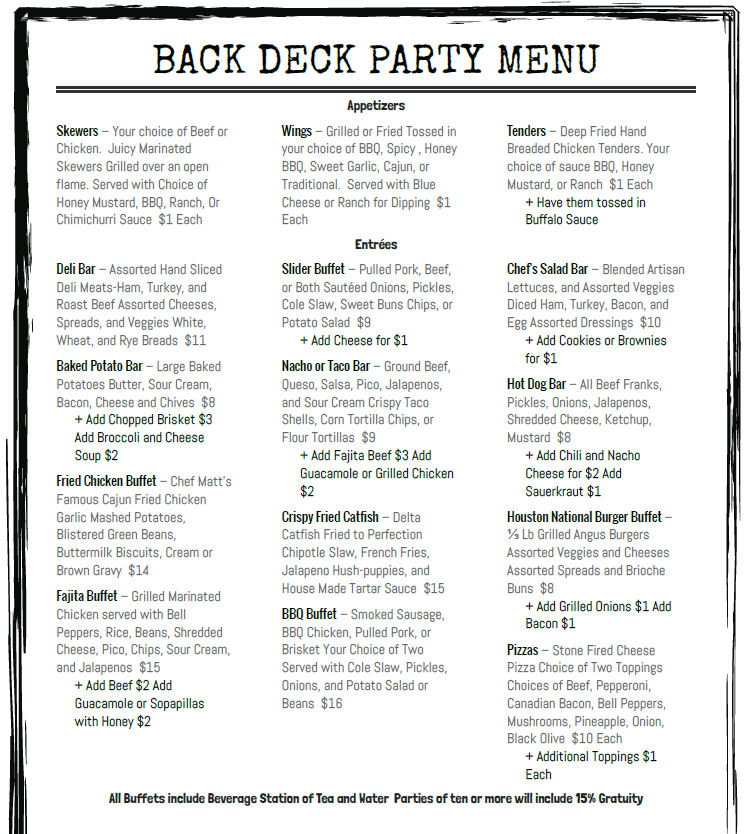 BACK DECK PARTY MENU
Appetizers
Skewers – Your choice of Beef or
Chicken. Juicy Marinated
Skewers Grilled over an open
flame. Served with Choice of
Honey Mustard, BBQ, Ranch, Or
Chimichurri Sauce $1 Each
Wings – Grilled or Fried Tossed in
your choice of BBQ, Spicy , Honey
BBQ, Sweet Garlic, Cajun, or
Traditional. Served with Blue
Cheese or Ranch for Dipping $1
Each
Tenders – Deep Fried Hand
Breaded Chicken Tenders. Your
choice of sauce BBQ, Honey
Mustard, or Ranch $1 Each
+ Have them tossed in
Buffalo Sauce
Entrées
Deli Bar – Assorted Hand Sliced
Deli Meats-Ham, Turkey, and
Roast Beef Assorted Cheeses,
Spreads, and Veggies White,
Wheat, and Rye Breads $11
Baked Potato Bar – Large Baked
Potatoes Butter, Sour Cream,
Bacon, Cheese and Chives $8
+ Add Chopped Brisket $3
Add Broccoli and Cheese
Soup $2
Fried Chicken Buffet – Chef Matt's
Famous Cajun Fried Chicken
Garlic Mashed Potatoes,
Blistered Green Beans,
Buttermilk Biscuits, Cream or
Brown Gravy $14
Fajita Buffet – Grilled Marinated
Chicken served with Bell
Peppers, Rice, Beans, Shredded
Cheese, Pico, Chips, Sour Cream,
and Jalapenos $15
+ Add Beef $2 Add
Guacamole or Sopapillas
with Honey $2
Slider Buffet – Pulled Pork, Beef,
or Both Sautéed Onions, Pickles,
Cole Slaw, Sweet Buns Chips, or
Potato Salad $9
+ Add Cheese for $1
Nacho or Taco Bar – Ground Beef,
Queso, Salsa, Pico, Jalapenos,
and Sour Cream Crispy Taco
Shells, Corn Tortilla Chips, or
Flour Tortillas $9
+ Add Fajita Beef $3 Add
Guacamole or Grilled Chicken
$2
Crispy Fried Catfish – Delta
Catfish Fried to Perfection
Chipotle Slaw, French Fries,
Jalapeno Hush-puppies, and
House Made Tartar Sauce $15
BBQ Buffet – Smoked Sausage,
BBQ Chicken, Pulled Pork, or
Brisket Your Choice of Two
Served with Cole Slaw, Pickles,
Onions, and Potato Salad or
Beans $16
Chef's Salad Bar – Blended Artisan
Lettuces, and Assorted Veggies
Diced Ham, Turkey, Bacon, and
Egg Assorted Dressings $10
+ Add Cookies or Brownies
for $1
Hot Dog Bar – All Beef Franks,
Pickles, Onions, Jalapenos,
Shredded Cheese, Ketchup,
Mustard $8
+ Add Chili and Nacho
Cheese for $2 Add
Sauerkraut $1
Houston National Burger Buffet –
⅓ Lb Grilled Angus Burgers
Assorted Veggies and Cheeses
Assorted Spreads and Brioche
Buns $8
+ Add Grilled Onions $1 Add
Bacon $1
Pizzas – Stone Fired Cheese
Pizza Choice of Two Toppings
Choices of Beef, Pepperoni,
Canadian Bacon, Bell Peppers,
Mushrooms, Pineapple, Onion,
Black Olive $10 Each
+ Additional Toppings $1
Each
All Buffets include Beverage Station of Tea and Water Parties of ten or more will include 15% Gratuity